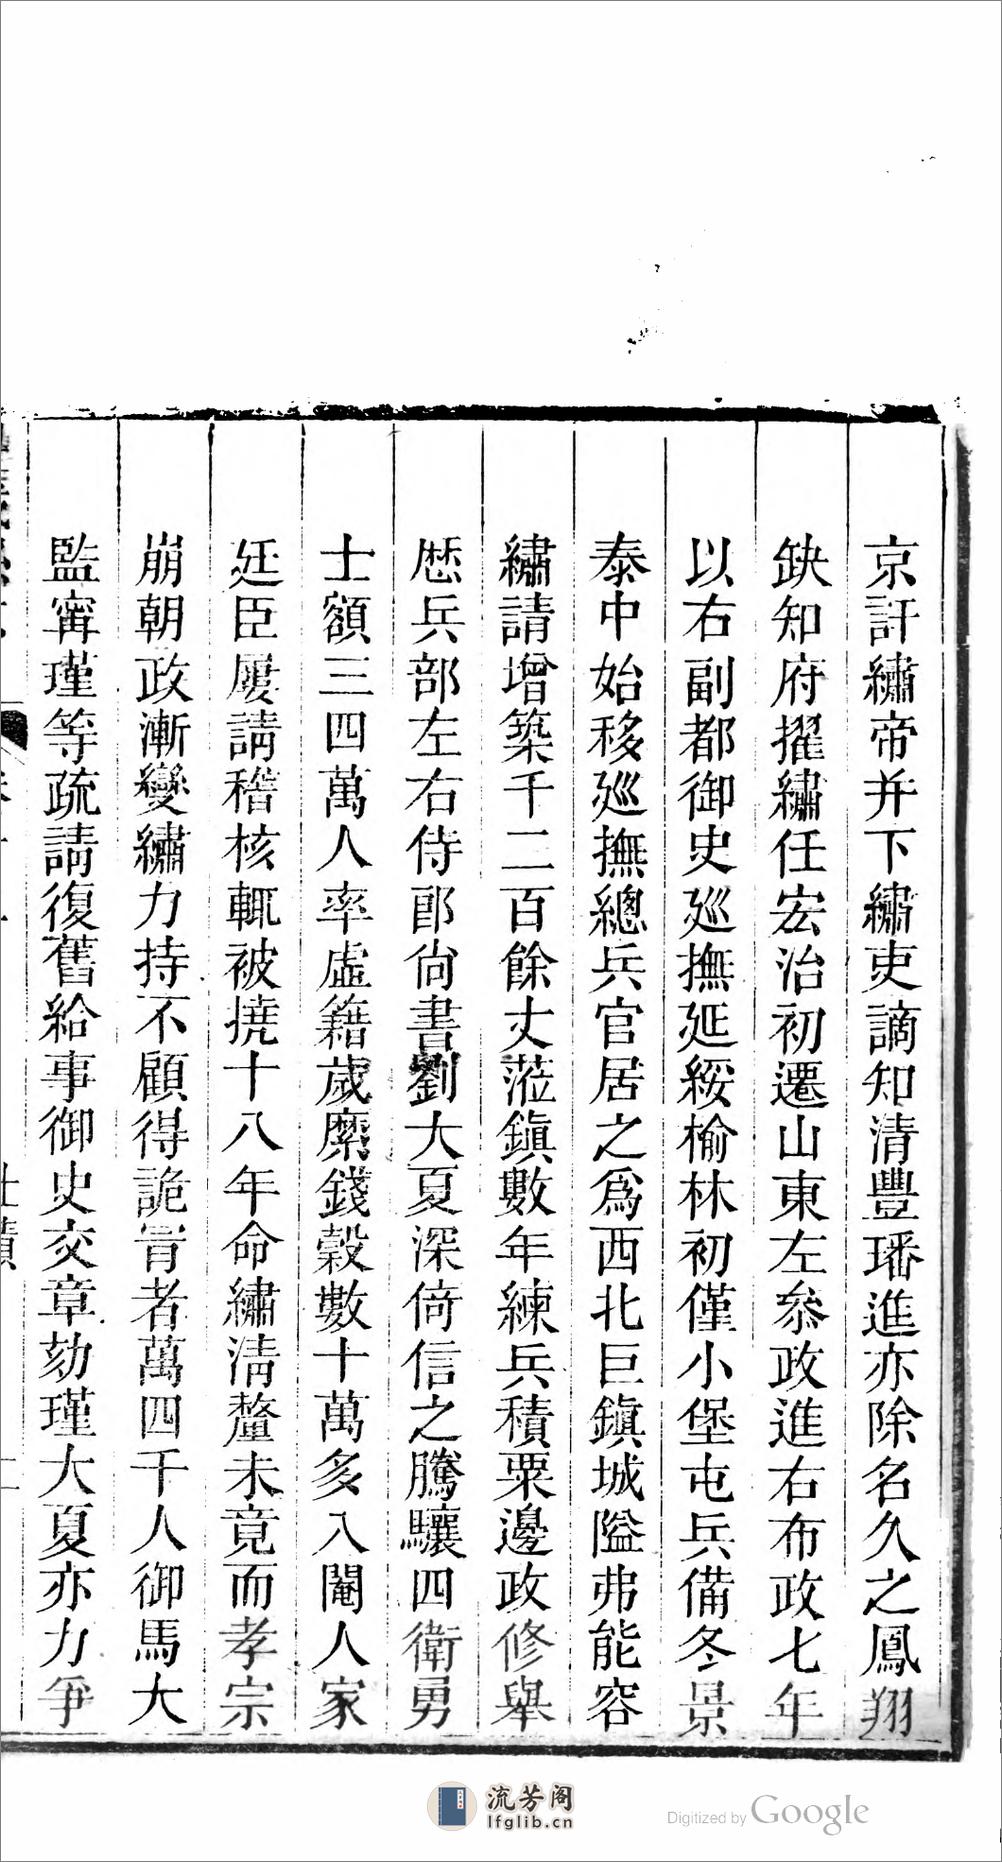 京訐繡帝并下繡吏謫知清豐璠進亦除名久之鳳翔
缺知府擢繡任宏治初遷山東左叅政進右布政七年
以右副都御史廵撫延綏榆林初僅小堡屯兵備冬景
泰中始移廵撫總兵官居之爲西北巨鎭城隘弗能容
繡請增築千二百餘丈蒞鎭數年練兵積粟邊政修舉
歴兵部左右侍郎尙書劉大夏深倚信之騰驤四衛勇
士額三四萬人率虛籍歲縻錢穀數十萬多入閹人家
廷臣屢請稽核輒被撓十八年命繡淸釐未竟而孝宗
崩朝政漸變繡力持不顧得詭冐者萬四千人御馬大
監甯瑾等疏請復舊給事御史交章劾瑾大夏亦力爭
仕績
流芳阁
lfglib.cn
Digitized by Google